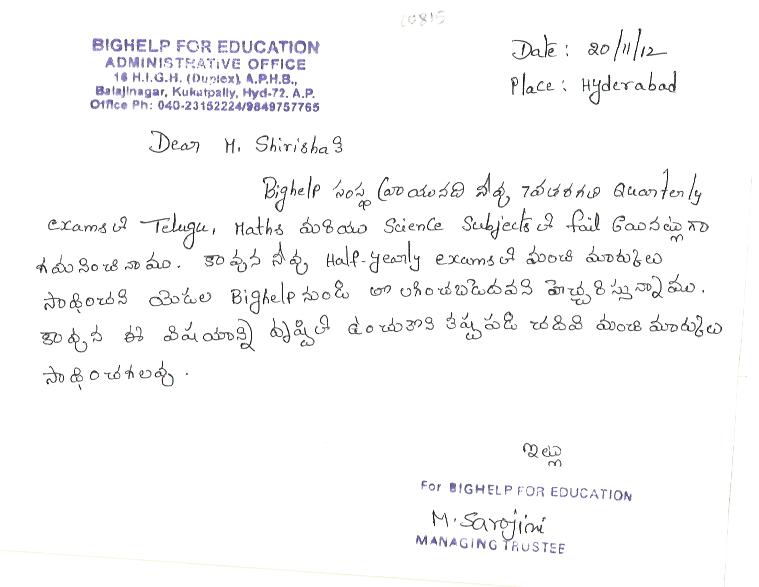 10815
BIGHELP FOR EDUCATION
ADMINISTRATIVE OFFICE
16 H.I.G.H. (Duplex), A.P.H.B.,
Balajinagar, Kukatpally, Hyd-72. A.P.
Office Ph: 040-23152224/9849757765
Date: 20/11/12
Place: Hyderabad
Dear M. Shirisha కి
Bighelp సంస్థ వ్రాయునది నీవు 7వతరగతి Quarterly
exams లో Telugu, Maths మరియు Science Subjects లో fail అయినట్లుగా
గమనించినాము. కావున నీవు Half-yearly exams లో మంచి మార్కులు
సాధించని యెడల Bighelp నుండి తొలగించబడెదవని హెచ్చరిస్తున్నాము.
కావున ఈ విషయాన్ని దృష్టిలో ఉంచుకొని కష్టపడి చదివి మంచి మార్కులు
సాధించగలవు.
ఇట్లు
For BIGHELP FOR EDUCATION
M. Sarojini
MANAGING TRUSTEE